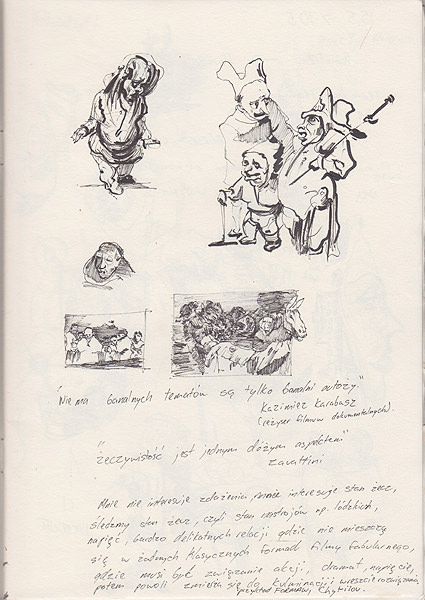 "Nie ma banalnych tematów są tylko banalni autorzy."
Kazimierz Karabasz
(reżyser filmów dokumentalnych).
"rzeczywistość jest jednym dużym aspektem"
Zavattini
Mnie nie interesuje zdarzenia, mnie interesuje stan rzeczy,
śledzimy stan rzeczy, czyli stan nastrojów np. ludzkich,
napięć, bardzo delikatnych relacji gdzie nie mieszczą
się w żadnych klasycznych formach filmu fabularnego,
gdzie musi być zawiązanie akcji, dramat, napięcie,
potem powoli zmierza się do kulminacji i wreszcie rozwiązania
przykład Formany Chytilov.